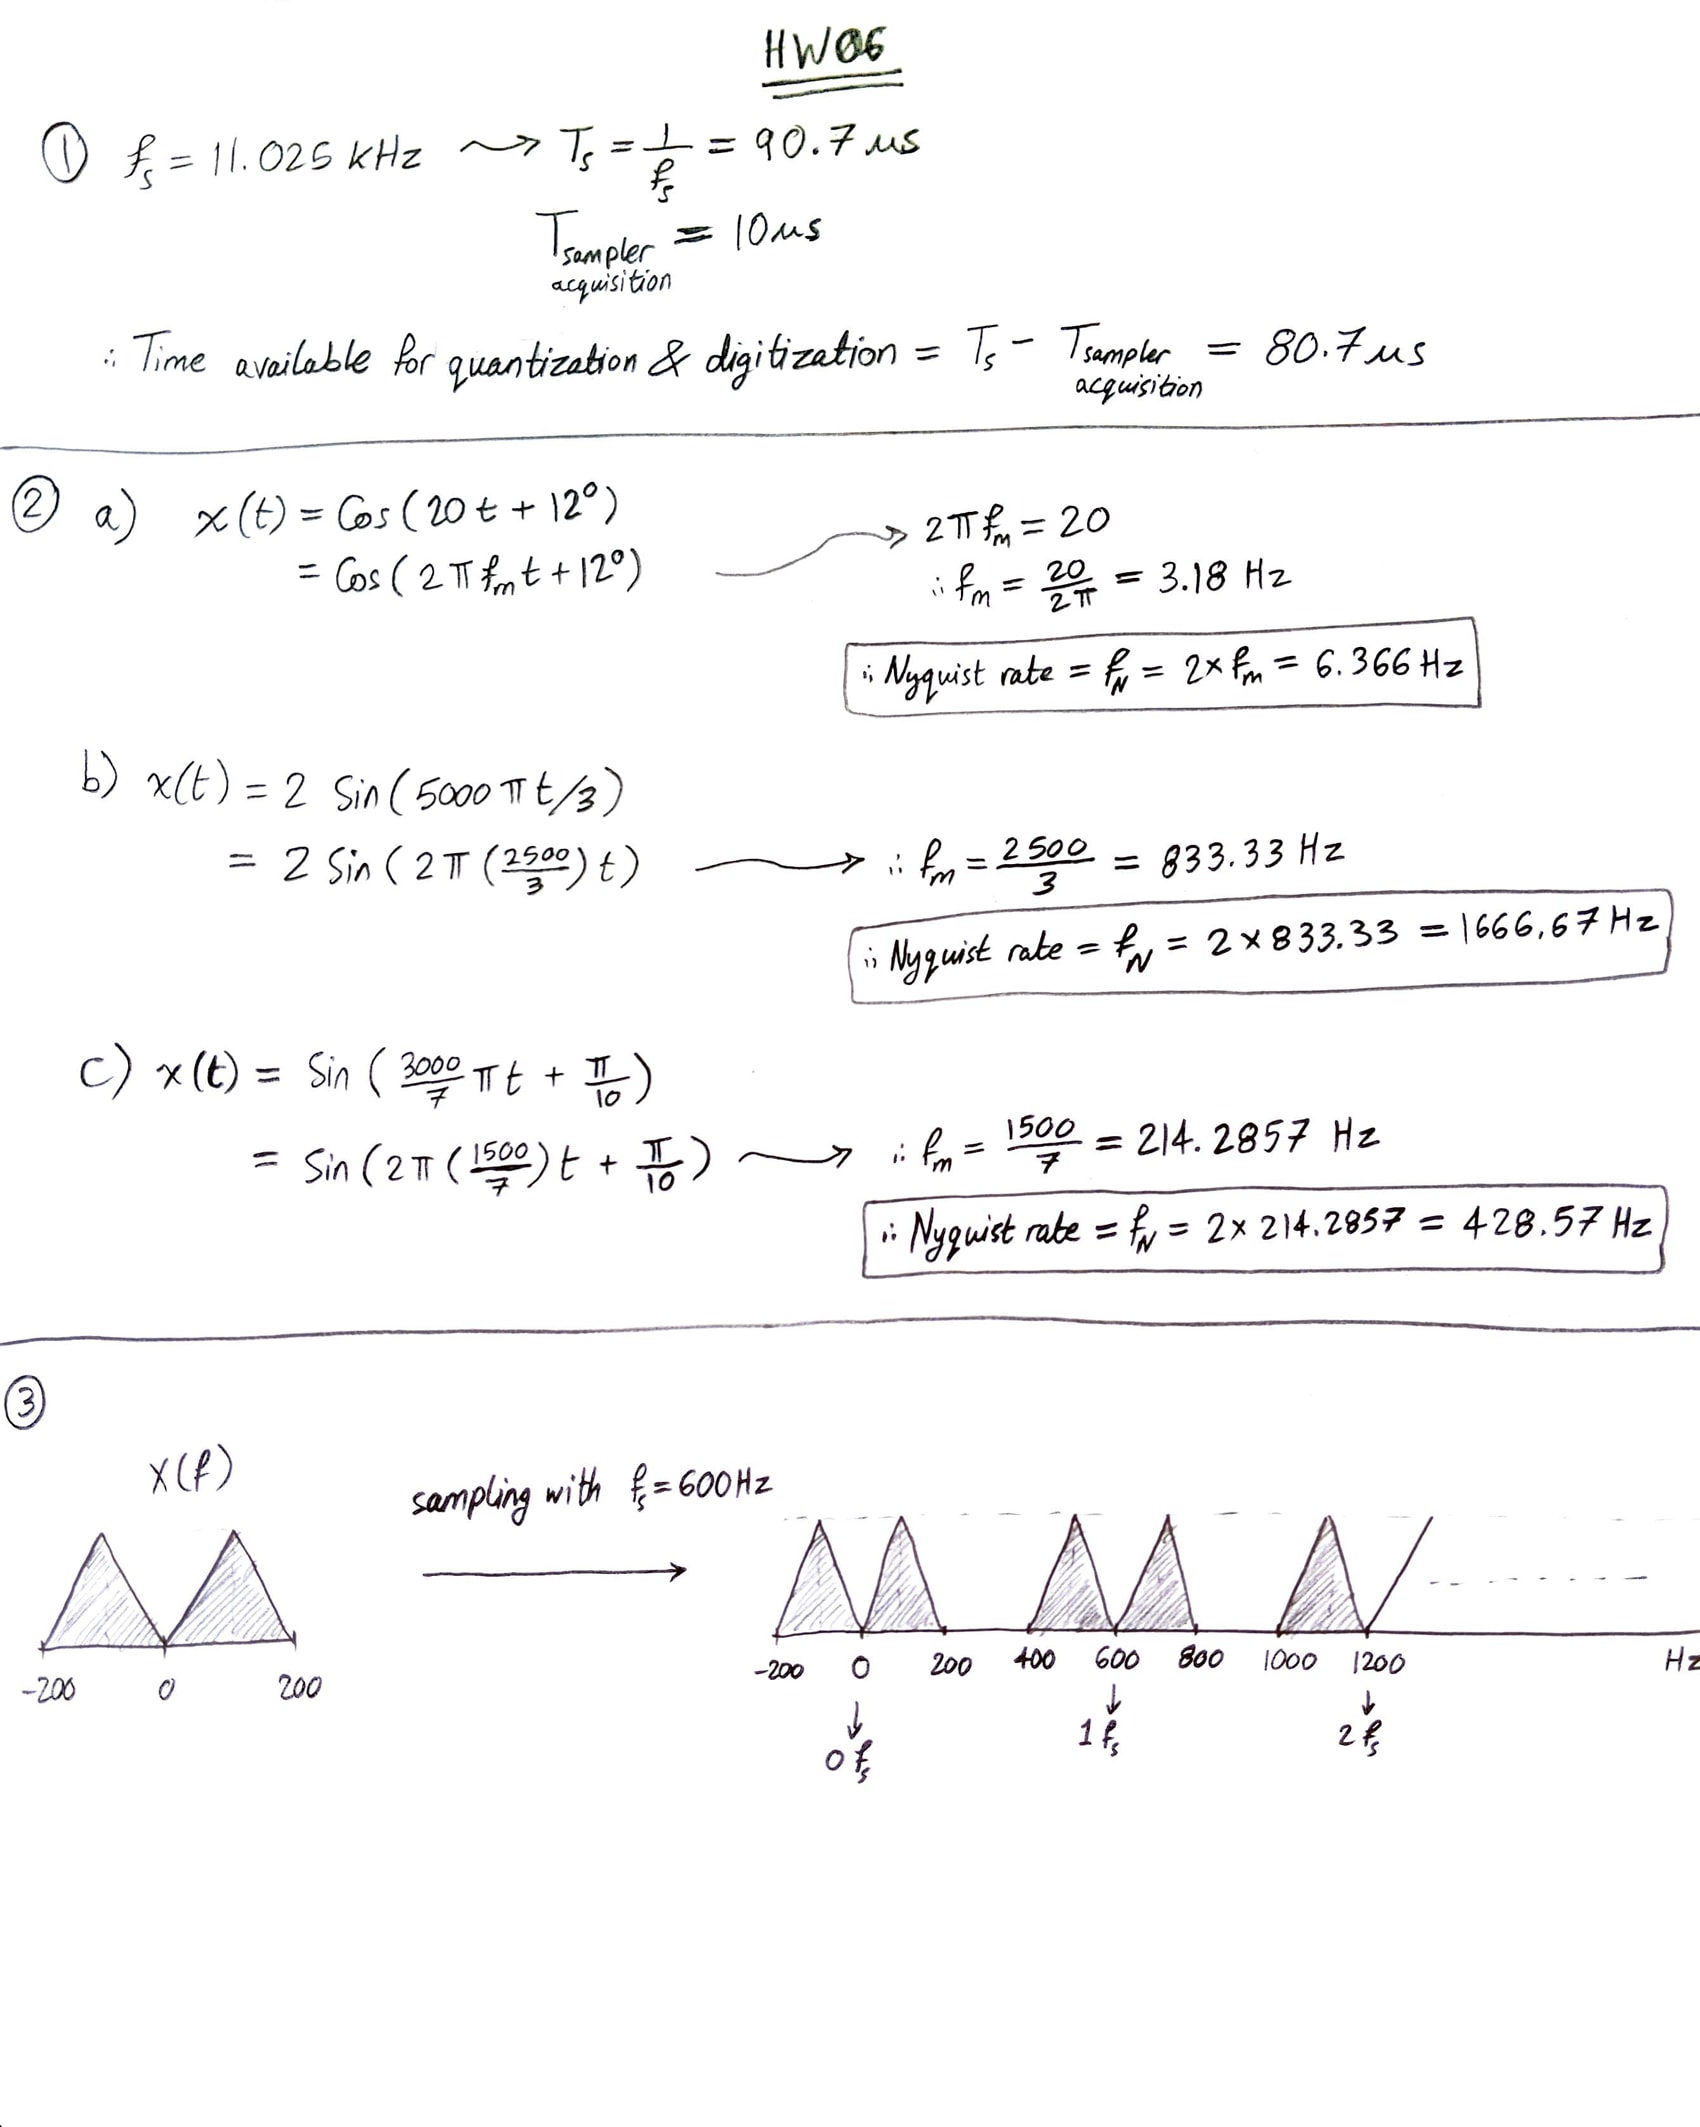 HW06
① fs = 11.025 kHz ⇝ Ts = 1/fs = 90.7 μs
Tsampler acquisition = 10 μs
∴ Time available for quantization & digitization = Ts - Tsampler acquisition = 80.7 μs
② a) x(t) = Cos(20t + 12°)
= Cos(2πfmt + 12°)
→ 2πfm = 20
∴ fm = 20/2π = 3.18 Hz
∴ Nyquist rate = fN = 2×fm = 6.366 Hz
b) x(t) = 2 Sin(5000πt/3)
= 2 Sin(2π(2500/3)t) → ∴ fm = 2500/3 = 833.33 Hz
∴ Nyquist rate = fN = 2×833.33 = 1666.67 Hz
c) x(t) = Sin(3000/7 πt + π/10)
= Sin(2π(1500/7)t + π/10) → ∴ fm = 1500/7 = 214.2857 Hz
∴ Nyquist rate = fN = 2×214.2857 = 428.57 Hz
③
X(f)
sampling with fs = 600Hz
-200 0 200
-200 0 200 400 600 800 1000 1200 Hz
↓ ↓ ↓
0fs 1fs 2fs